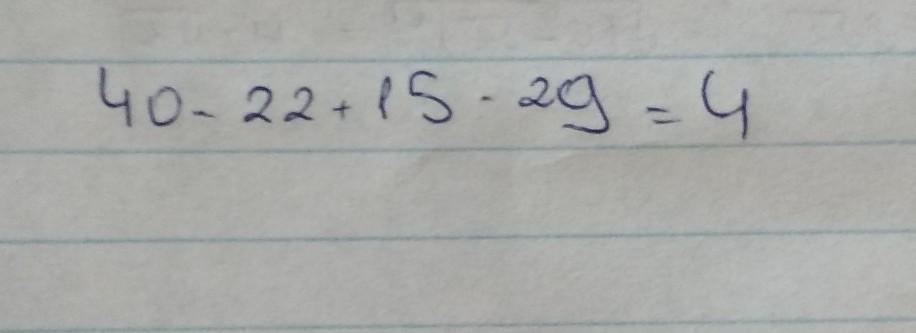 40 - 22 + 15 - 29 = 4